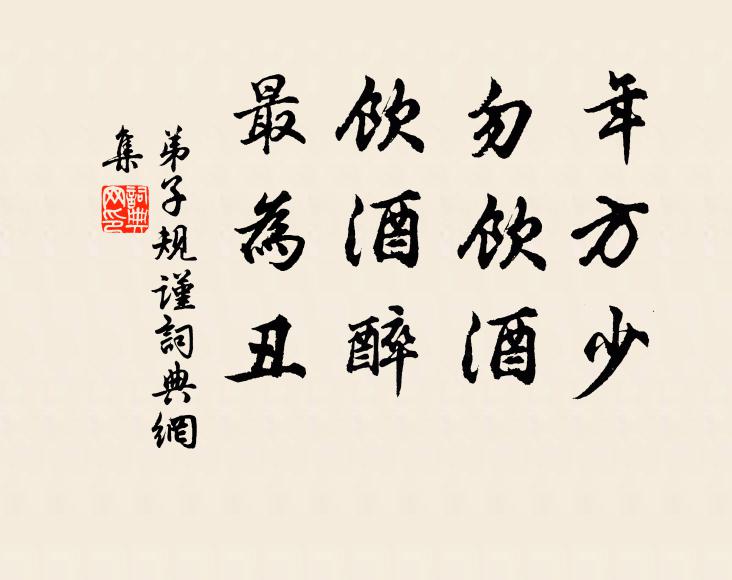 年方少
勿飲酒
飲酒醉
最為丑
弟子規謹詞典網
集
詞典
网印